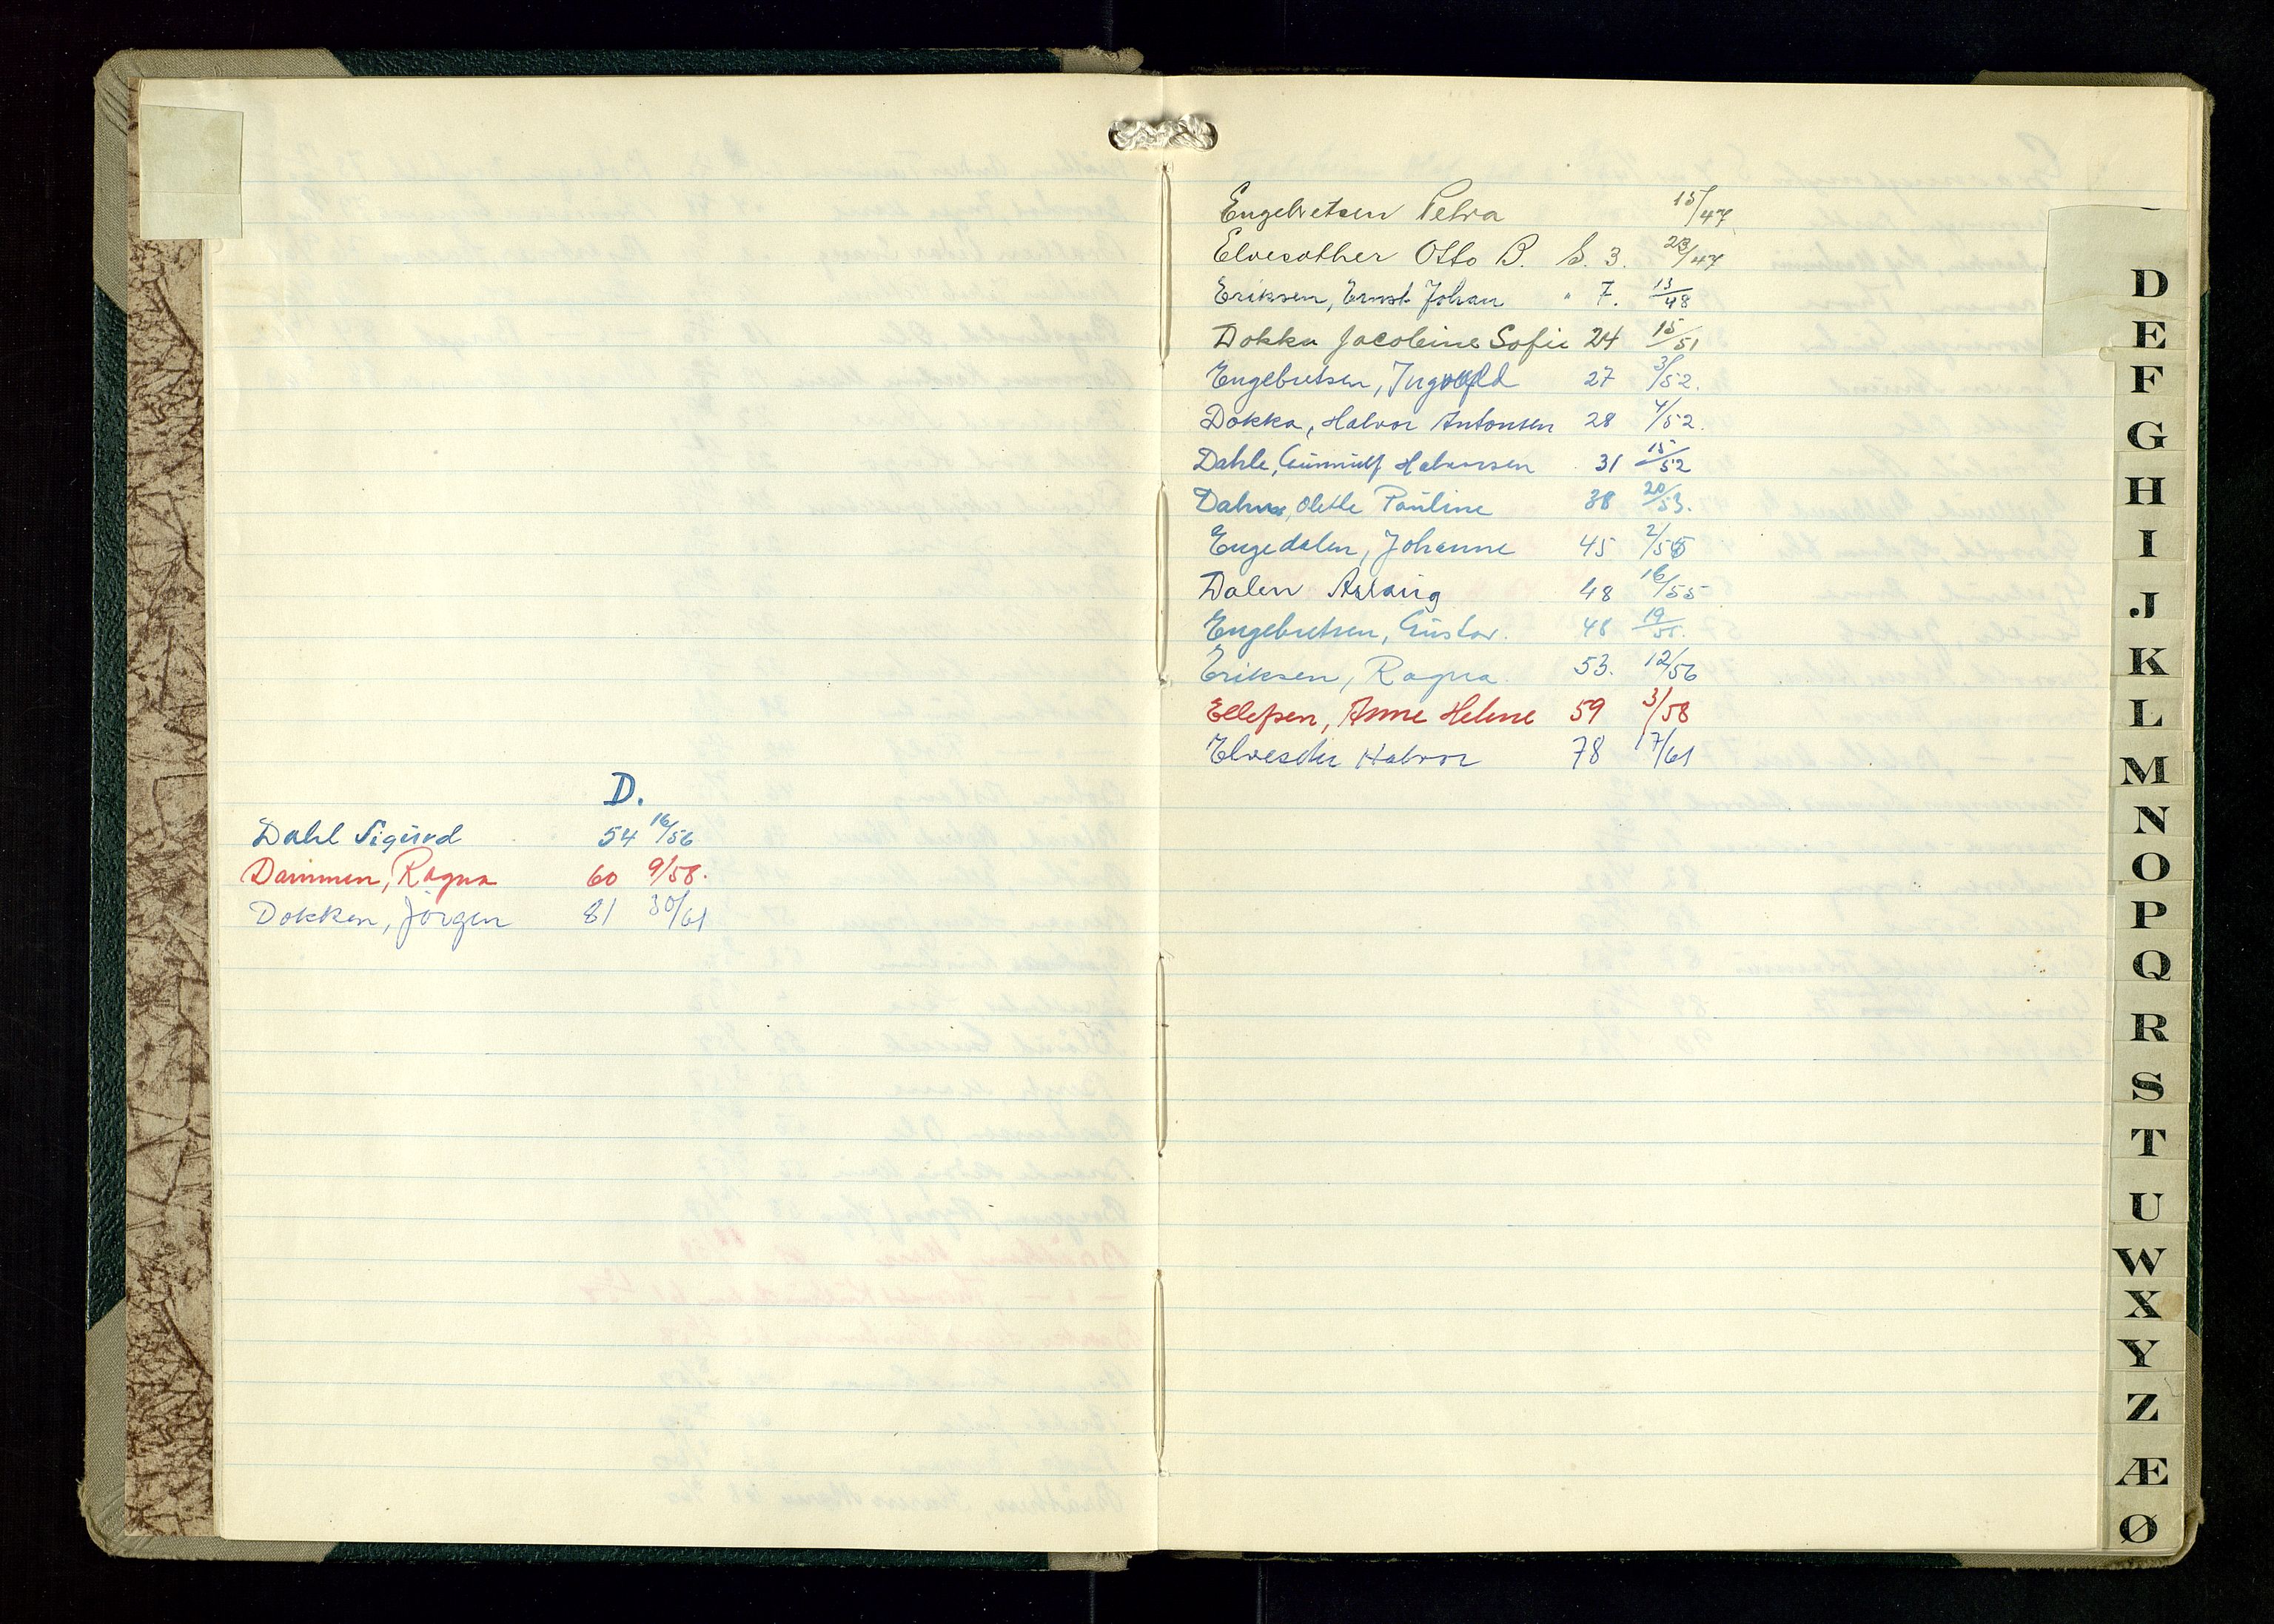 D.
Dahl Sigurd 54 16/56
Dammen, Ragna 60 9/58.
Dokken, Jörgen 81 30/61
Engebretsen Petra 15/47
Elvesæther Otto B. S. 3. 23/47
Eriksen, Ernst Johan " 7. 13/48
Dokka Jacobine Sofie 24 15/51
Engebretsen, Ingvald 27 3/52.
Dokka, Halvor Antonsen 28 4/52.
Dahle, Gunnulf Halvorsen 31 15/52
Olette Pauline 38 20/53.
Engedalen, Johanne 45 2/55
Dalen Aslaug 48 16/55
Engebretsen, Gustav. 48 19/55.
Eriksen, Ragna 53. 12/56
Ellefsen, Anne Helene 59 3/58
Halvor 78 17/61
D
E
F
G
H
I
J
K
L
M
N
O
P
Q
R
S
T
U
W
X
Y
Z
Æ
Ø